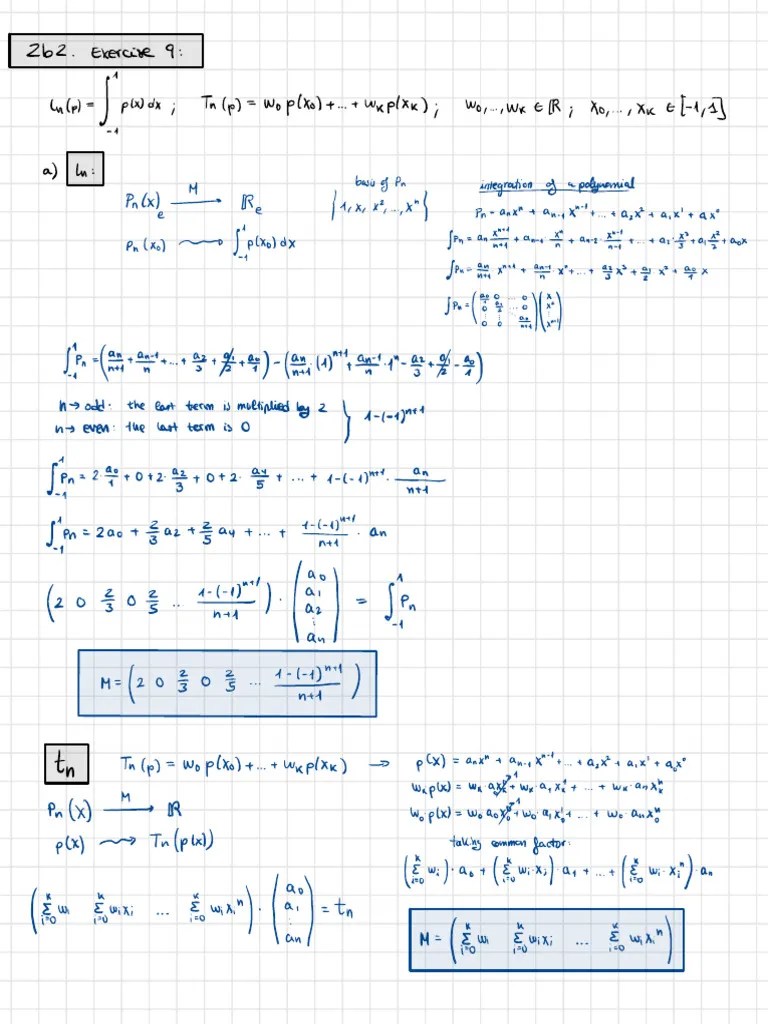 2b2. Exercise 9:
Ln(p) = ∫₋₁¹ p(x) dx ; Tn(p) = w₀ p(x₀) + ... + wₖ p(xₖ) ; w₀, ..., wₖ ∈ ℝ ; x₀, ..., xₖ ∈ [-1, 1]
a) Ln:
Pn(x)ₑ →M ℝₑ
pn(x₀) ⇝ ∫₋₁¹ p(x₀) dx
basis of Pn
{1, x, x², ..., xⁿ}
integration of a polynomial
Pn = aₙxⁿ + aₙ₋₁ xⁿ⁻¹ + ... + a₂x² + a₁x¹ + ax⁰
∫Pn = aₙ xⁿ⁺¹/n+1 + aₙ₋₁ xⁿ/n + aₙ₋₂ xⁿ⁻¹/n-1 + ... + a₂ x³/3 + a₁ x²/2 + a₀x
∫Pn = aₙ/n+1 xⁿ⁺¹ + aₙ₋₁/n xⁿ + ... + a₂/3 x³ + a₁/2 x² + a₀/1 x
∫Pn = (a₀/1 0 ... 0
0 a₁/2 ... 0
0 0 aₙ/n+1) (x
xⁿ⁺¹)
∫₋₁¹ Pn = (aₙ/n+1 + aₙ₋₁/n + ... + a₂/3 + a₁/2 + a₀/1) - (aₙ/n+1 · (1)ⁿ⁺¹ + aₙ₋₁/n · 1ⁿ - a₂/3 + a₁/2 - a₀/1)
n → odd: the last term is multiplied by 2
n → even: the last term is 0
} 1-(-1)ⁿ⁺¹
∫₋₁¹ Pn = 2· a₀/1 + 0 + 2· a₂/3 + 0 + 2· a₄/5 + ... + 1-(-1)ⁿ⁺¹ · aₙ/n+1
∫₋₁¹ Pn = 2a₀ + 2/3 a₂ + 2/5 a₄ + ... + 1-(-1)ⁿ⁺¹/n+1 · aₙ
(2 0 2/3 0 2/5 ... 1-(-1)ⁿ⁺¹/n+1) · (a₀ a₁ a₂ ⋮ aₙ) = ∫₋₁¹ Pn
M = (2 0 2/3 0 2/5 ... 1-(-1)ⁿ⁺¹/n+1)
tn
Tn(p) = w₀ p(x₀) + ... + wₖ p(xₖ) →
Pn(x) →M ℝ
p(x) ⇝ Tn(p(x))
p(x) = aₙxⁿ + aₙ₋₁ xⁿ⁻¹ + ... + a₂x² + a₁x¹ + a₀x⁰
wₖp(x) = wₖ a₀xₖ⁰ + wₖ a₁xₖ¹ + ... + wₖ aₙxₖⁿ
w₀p(x) = w₀ a₀x₀⁰ + w₀ a₁x₀¹ + ... + w₀ aₙx₀ⁿ
taking common factor:
(Σᵢ₌₀ᵏ wᵢ) · a₀ + (Σᵢ₌₀ᵏ wᵢ·xᵢ) · a₁ + ... + (Σᵢ₌₀ᵏ wᵢ·xᵢⁿ) · aₙ
(Σᵢ₌₀ᵏ wᵢ Σᵢ₌₀ᵏ wᵢxᵢ ... Σᵢ₌₀ᵏ wᵢxᵢⁿ) · (a₀ a₁ ⋮ aₙ) = tn
M = (Σᵢ₌₀ᵏ wᵢ Σᵢ₌₀ᵏ wᵢxᵢ ... Σᵢ₌₀ᵏ wᵢxᵢⁿ)